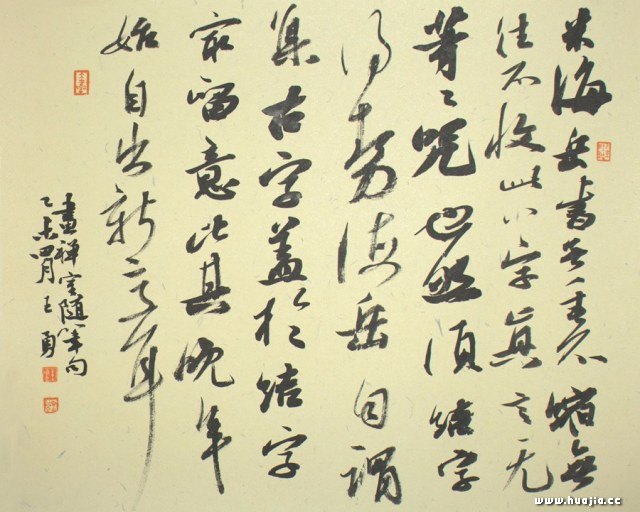 米海岳書無垂不縮無
往不收此八字真言无
等々咒也然須結字
得勢海岳自謂
集古字蓋於結字
最留意比其晚年
始自出新意耳
畫禪室隨筆句
乙酉四月王勇
www.huajia.cc